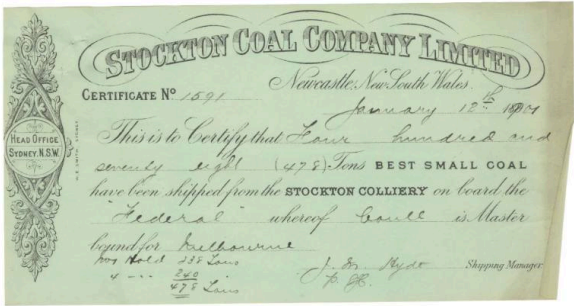 STOCKTON COAL COMPANY LIMITED
Newcastle, New South Wales.
CERTIFICATE No 1591
January 12th 1901
HEAD OFFICE
SYDNEY. N.S.W.
This is to Certify that Four hundred and
seventy eight (478) Tons BEST SMALL COAL
have been shipped from the STOCKTON COLLIERY on board the
"Federal" whereof Coull is Master
bound for Melbourne
Hold 238 Tons
240
478 Tons
J. M. Hyde Shipping Manager